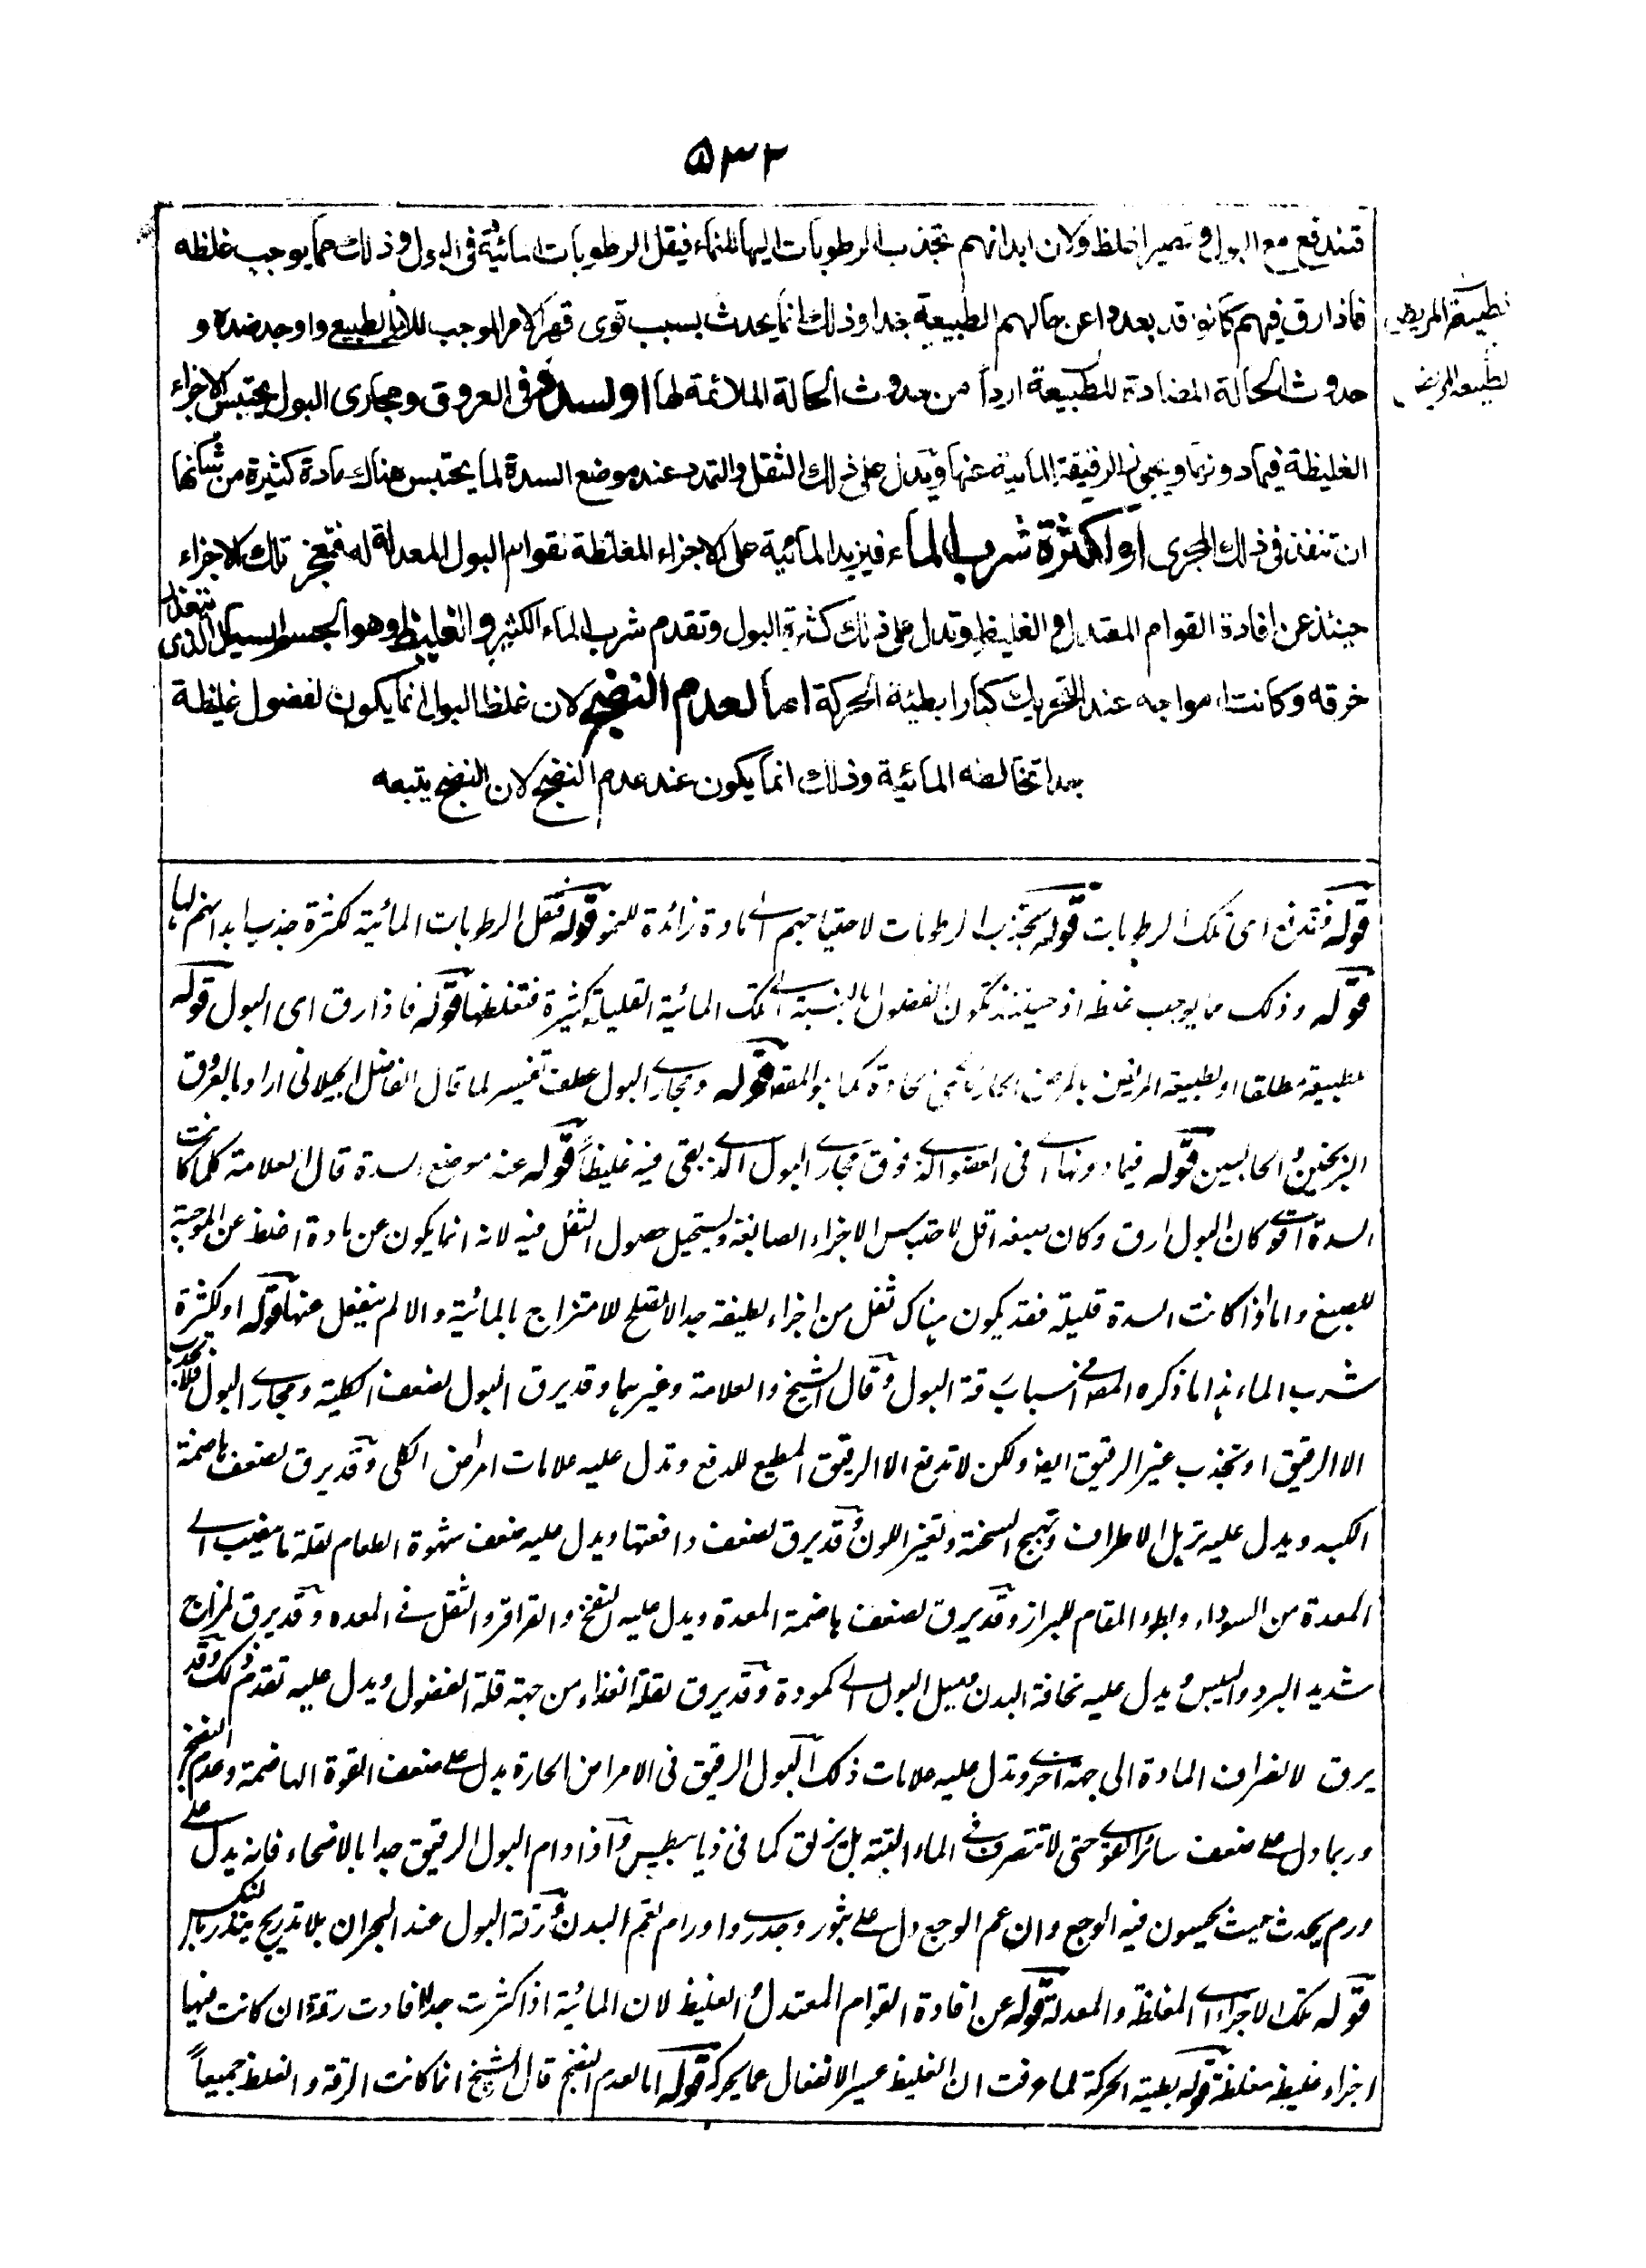 ۵۳۲
فتندفع مع البول و تصير اغلظ ولان ابدانهم تجذب الرطوبات اليها للنماء فيقل الرطوبات المائية فى البول و ذلك مما يوجب غلظه
فاذا رق فيهم كانوا قد بعدوا عن حالهم الطبيعية جدا و ذلك انما يحدث بسبب قوى قهر الامر الموجب للاثر الطبيعى و اوجد ضده و
لطبيعة المريض
حدوث الحالة المضادة للطبيعة اردأ من حدوث الحالة الملائمة لها او لسدة فى العروق و مجارى البول يحتبس الاجزاء
لطبيعة المريض
الغليظة فيما دونها و يجرى الرقيقة المائية عنها و يدل على ذلك الثقل و التمدد عند موضع السدة لما يحتبس هناك مادة كثيرة من شانها
ان تنفذ فى ذلك المجرى او لكثرة شرب الماء فيزيد المائية على الاجزاء المغلظة لقوام البول المعدلة له فتعجز تلك الاجزاء
حينئذ عن افادة القوام المعتدل و الغليظ و تدل على ذلك كثرة البول و تقدم شرب الماء الكثير و الغليظ و هو الجسم السيال الذى تنفذ
خرقه و كانت امواجه عند التحريك كبارا بطيئة الحركة اما لعدم النضج لان غلظ البول انما يكون لفضول غليظة
جدا تخالطه المائية و ذلك انما يكون عند عدم النضج لان النضج يتبعه
قوله فتندفع اى تلك الرطوبات قوله تجذب الرطوبات لاحتياجهم الى مادة زائدة للنمو قوله فتقل الرطوبات المائية لكثرة جذب ابدانهم لها
قوله و ذلك مما يوجب غلظه اذ حينئذ تكون الفضول بالنسبة الى تلك المائية القليلة كثيرة فتغلظها قوله فاذا رق اى البول قوله
للطبيعة مطلقا او لطبيعة المرضين بالمرض الحار كالحمى الحادة كما هو المقصود قوله و مجارى البول عطف تفسير لما قال الفاضل الجيلانى اراد بالعروق
البربخين و الحالبين قوله فيما دونها اى فى العضو الذى فوق مجارى البول الذى يبقى فيه غليظاً قوله عند موضع السدة قال العلامة كلما كانت
السدة اقوى كان البول ارق و كان صبغه اقل لاحتباس الاجزاء الصابغة و يستحيل حصول الثقل فيه لانه انما يكون عن مادة اغلظ عن الموجبة
للصبغ و اما اذا كانت السدة قليلة فقد يكون هناك ثفل من اجزاء لطيفة جدا لا تصلح للامتزاج بالمائية و الا لم ينفصل عنها قوله او لكثرة
شرب الماء هذا ما ذكره المص فى اسباب رقة البول و قال الشيخ و العلامة و غيرهما و قد يرق البول لضعف الكلية و مجارى البول فلا تجذب
الا الرقيق او تجذب غير الرقيق ايضا و لكن لا تدفع الا الرقيق المطيع للدفع و تدل عليه علامات امراض الكلى و قد يرق لضعف هاضمة
الكبد و يدل عليه ترهل الاطراف و تهيج السحنة و تغير اللون و قد يرق لضعف دافعتها و يدل عليه ضعف شهوة الطعام لقلة ما ينصب الى
المعدة من السوداء و ابطاء المقام للبراز و قد يرق لضعف هاضمة المعدة و يدل عليه النفخ و القراقر و الثقل فى المعدة و قد يرق لمزاج
شديد البرد و اليبس و يدل عليه نحافة البدن و ميل البول الى كمودة و قد يرق لقلة الغذاء من جهة قلة الفضول و يدل عليه تقدم ذلك و قد
يرق لانصراف المادة الى جهة اخرى و تدل عليه علامات ذلك البول الرقيق فى الامراض الحارة يدل على ضعف القوة الهاضمة و عدم النضج
و ربما دل على ضعف سائر القوى حتى لا تتصرف فى الماء البتة بل يزلق كما فى ذيابيطس و اذا دام البول الرقيق جدا بالاصحاء فانه يدل على
ورم يحدث حيث يحسون فيه الوجع و ان عم الوجع دل على بثور و جدرى و اورام تعم البدن و رقة البول عند البحران بلا تدريج ينذر بالنكس
قوله تلك الاجزاء اى المغلظة و المعدلة قوله عن افادة القوام المعتدل و الغليظ لان المائية اذا كثرت جدا افادت رقة و ان كانت فيها
اجزاء غليظة مغلظة قوله بطيئة الحركة لما عرفت ان الغليظ عسير الانفعال عما يحركه قوله اما لعدم النضج قال الشيخ انما كانت الرقة و الغلظ جميعاً